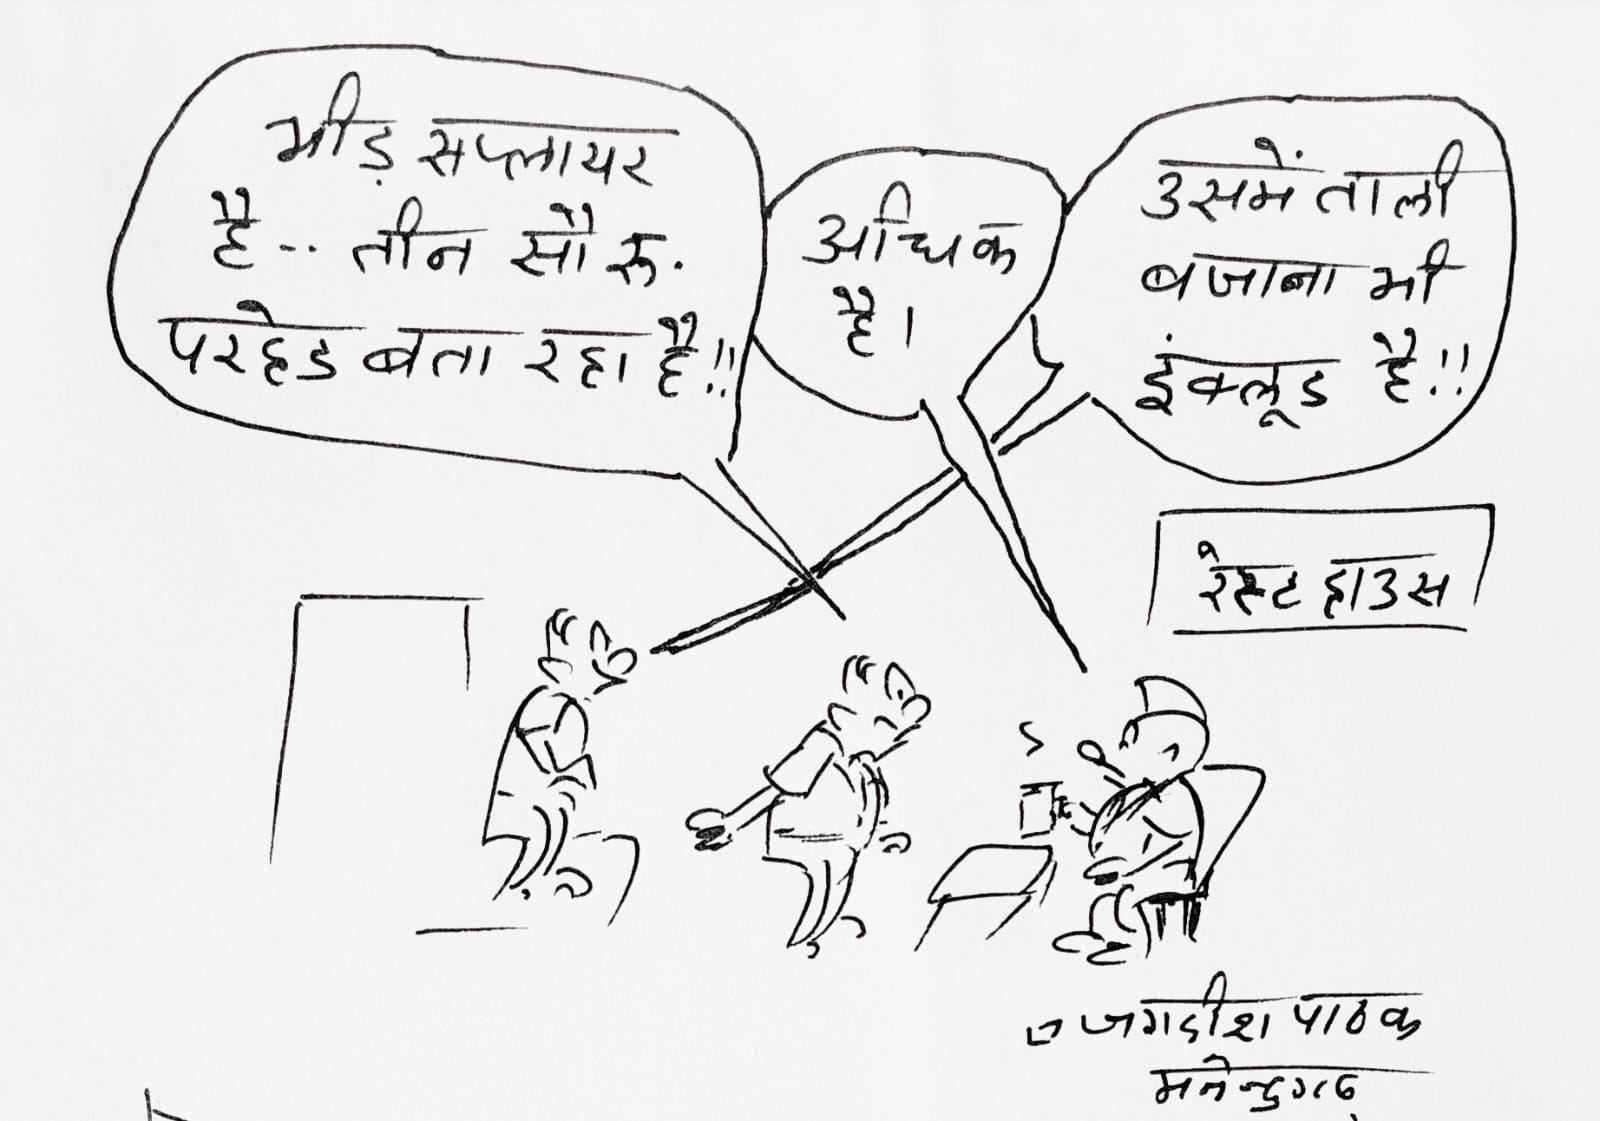 भीड़ सप्लायर
है -- तीन सौ रु.
परहेड बता रहा है!!
अधिक
है।
उसमें ताली
बजाना भी
इंक्लूड है!!
रेस्ट हाउस
जगदीश पाठक
मनेन्द्रगढ़